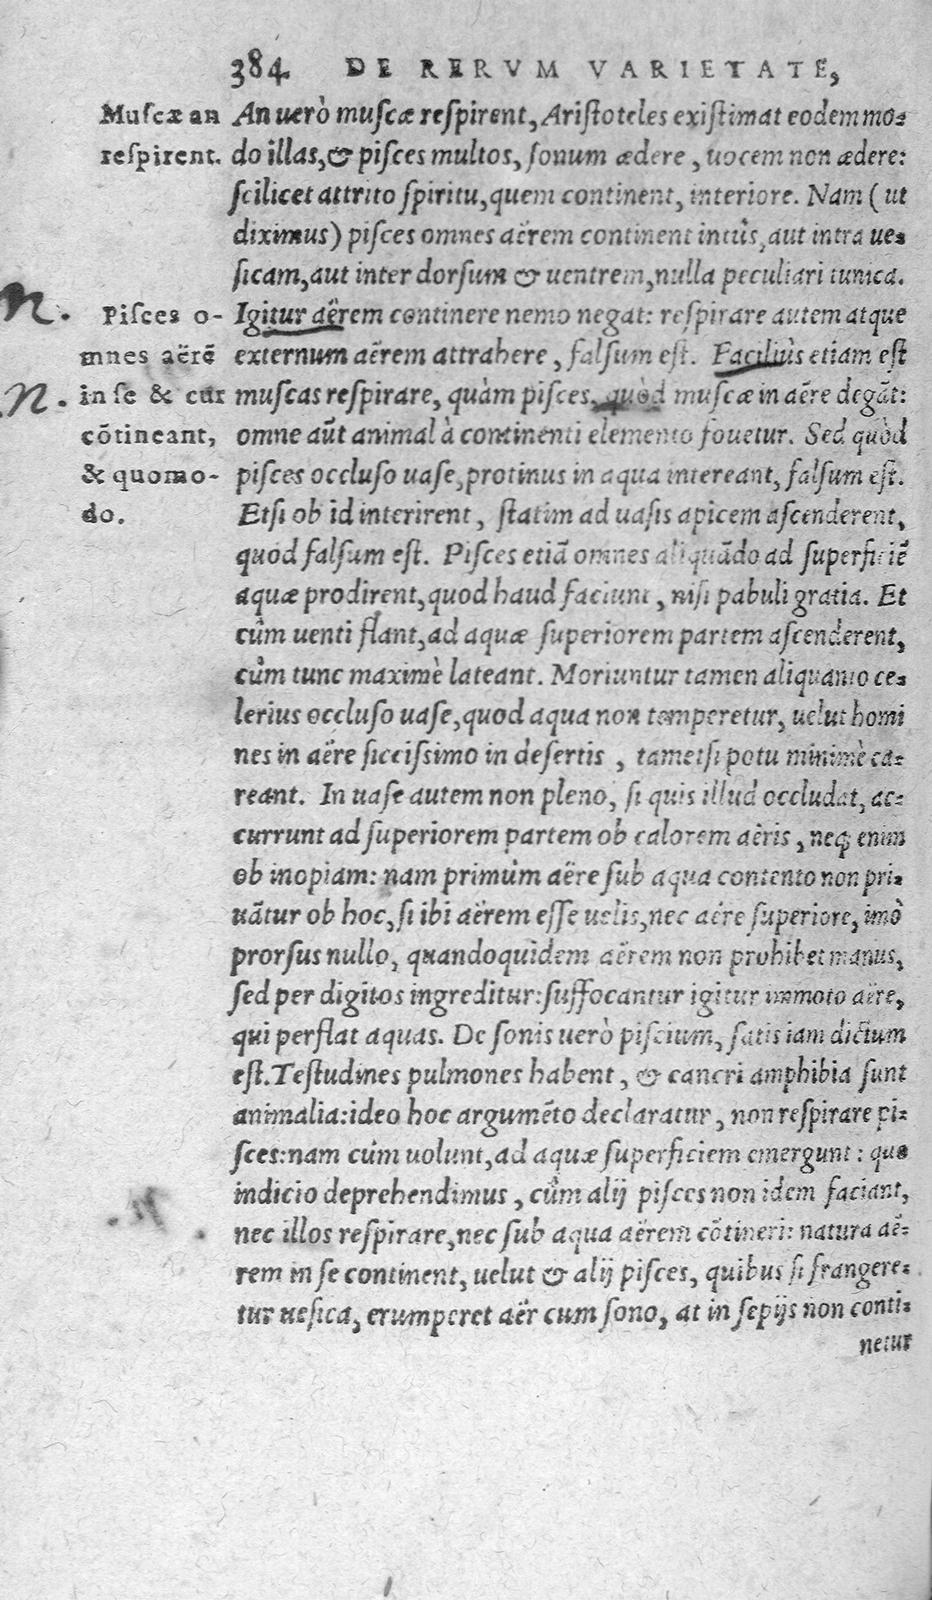 384 DE RERVM VARIETATE,
Muſcæ an
reſpirent.
An uerò muſcæ reſpirent, Ariſtoteles exiſtimat eodem mo-
do illas, & piſces multos, ſonum ædere, uocem non ædere:
ſcilicet attrito ſpiritu, quem continent, interiore. Nam (ut
diximus) piſces omnes aërem continent intûs, aut intra ue-
ſicam, aut inter dorſum & uentrem, nulla peculiari tunica.
N.
Piſces o-
mnes aërē
in ſe & cur
cōtineant,
& quomo-
do.
N.
Igitur aërem continere nemo negat: reſpirare autem atque
externum aërem attrahere, falſum eſt. Faciliùs etiam eſt
muſcas reſpirare, quàm piſces, quòd muſcæ in aëre degāt:
omne aūt animal à continenti elemento fouetur. Sed quòd
piſces occluſo uaſe, protinus in aqua intereant, falſum eſt.
Etſi ob id interirent, ſtatim ad uaſis apicem aſcenderent,
quod falſum eſt. Piſces etiā omnes aliquādo ad ſuperficiē
aquæ prodirent, quod haud faciunt, niſi pabuli gratia. Et
cûm uenti flant, ad aquæ ſuperiorem partem aſcenderent,
cûm tunc maximè lateant. Moriuntur tamen aliquanto ce-
lerius occluſo uaſe, quod aqua non temperetur, uelut homi
nes in aëre ſicciſsimo in deſertis, tametſi potu minimè ca-
reant. In uaſe autem non pleno, ſi quis illud occludat, ac-
currunt ad ſuperiorem partem ob calorem aëris, neq; enim
ob inopiam: nam primùm aëre ſub aqua contento non pri-
uātur ob hoc, ſi ibi aërem eſſe uelis, nec aëre ſuperiore, imò
prorſus nullo, quandoquidem aërem non prohibet manus,
ſed per digitos ingreditur: ſuffocantur igitur immoto aëre,
qui perflat aquas. De ſonis uerò piſcium, ſatis iam dictum
eſt. Teſtudines pulmones habent, & cancri amphibia ſunt
animalia: ideo hoc argumēto declaratur, non reſpirare pi-
ſces: nam cûm uolunt, ad aquæ ſuperficiem emergunt: quo
indicio deprehendimus, cûm alij piſces non idem faciant,
nec illos reſpirare, nec ſub aqua aërem cōtineri: natura aë-
rem in ſe continent, uelut & alij piſces, quibus ſi frangere-
tur ueſica, erumperet aër cum ſono, at in ſepijs non conti-
netur